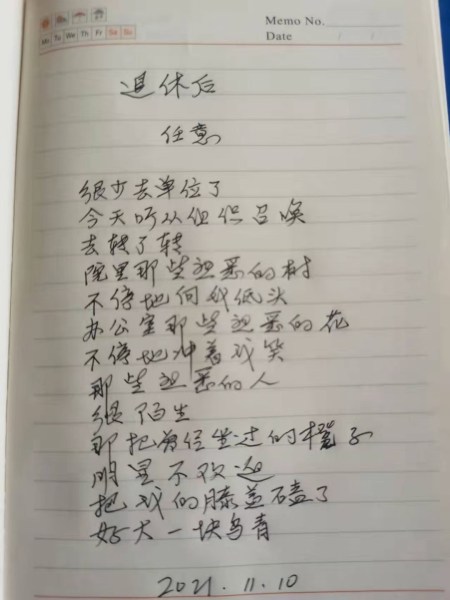 Memo No.
Mo Tu We Th Fr Sa Su
Date / /
退休后
任意
很少去单位了
今天听从组织召唤
去转了转
院里那些熟悉的树
不停地向我低头
办公室那些熟悉的花
不停地冲着我笑
那些熟悉的人
很陌生
那把曾经坐过的椅子
明显不欢迎
把我的膝盖磕了
好大一块乌青
2021.11.10